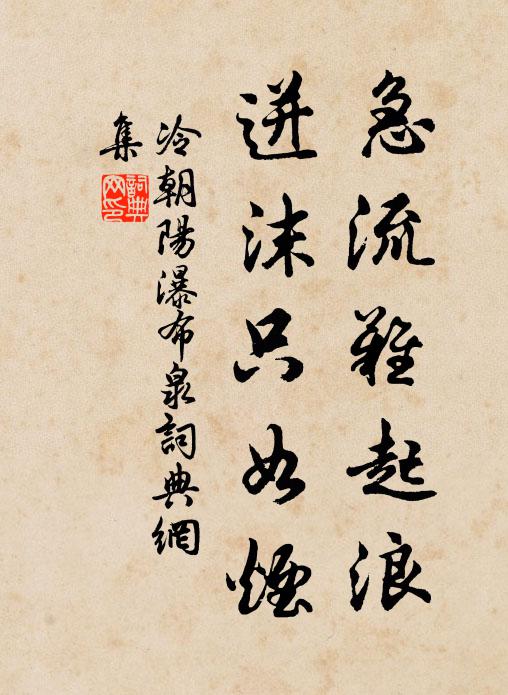 急流難起浪
迸沫只如煙
冷朝陽瀑布泉詞典網
集
詞典
网印